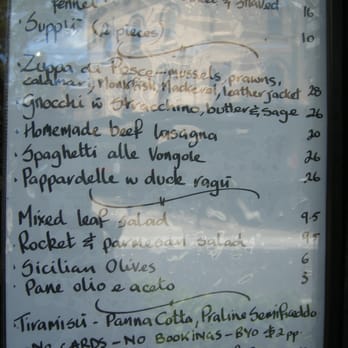 fennel & shaved
16
· Supplì (2 pieces) 10
· Zuppa di Pesce - mussels, prawns,
calamari, Monkfish, Mackerel, leatherjacket 28
· Gnocchi w Stracchino, butter & sage 26
· Homemade beef lasagna 20
· Spaghetti alle Vongole 26
· Pappardelle w duck ragù 26
Mixed leaf salad 9.5
· Rocket & parmesan salad 9.5
· Sicilian Olives 6
· Pane olio e aceto 5
· Tiramisù - Panna Cotta, Praline Semifreddo
NO CARDS - NO BOOKINGS - BYO $2pp.